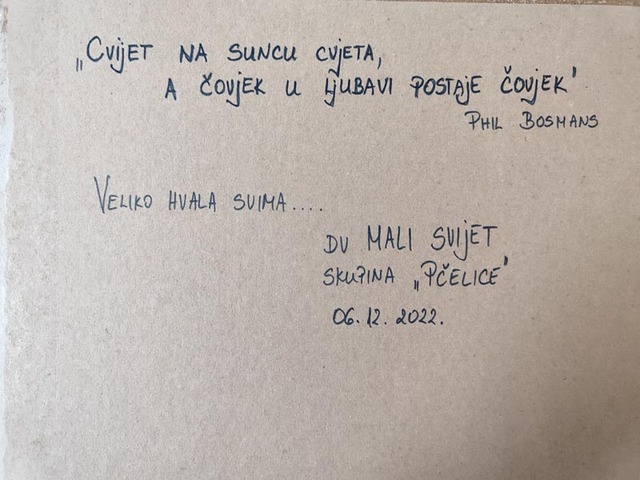 „Cvijet na suncu cvjeta,
a čovjek u ljubavi postaje čovjek"
Phil Bosmans
Veliko hvala svima....
DV Mali svijet
skupina „Pčelice"
06.12.2022.